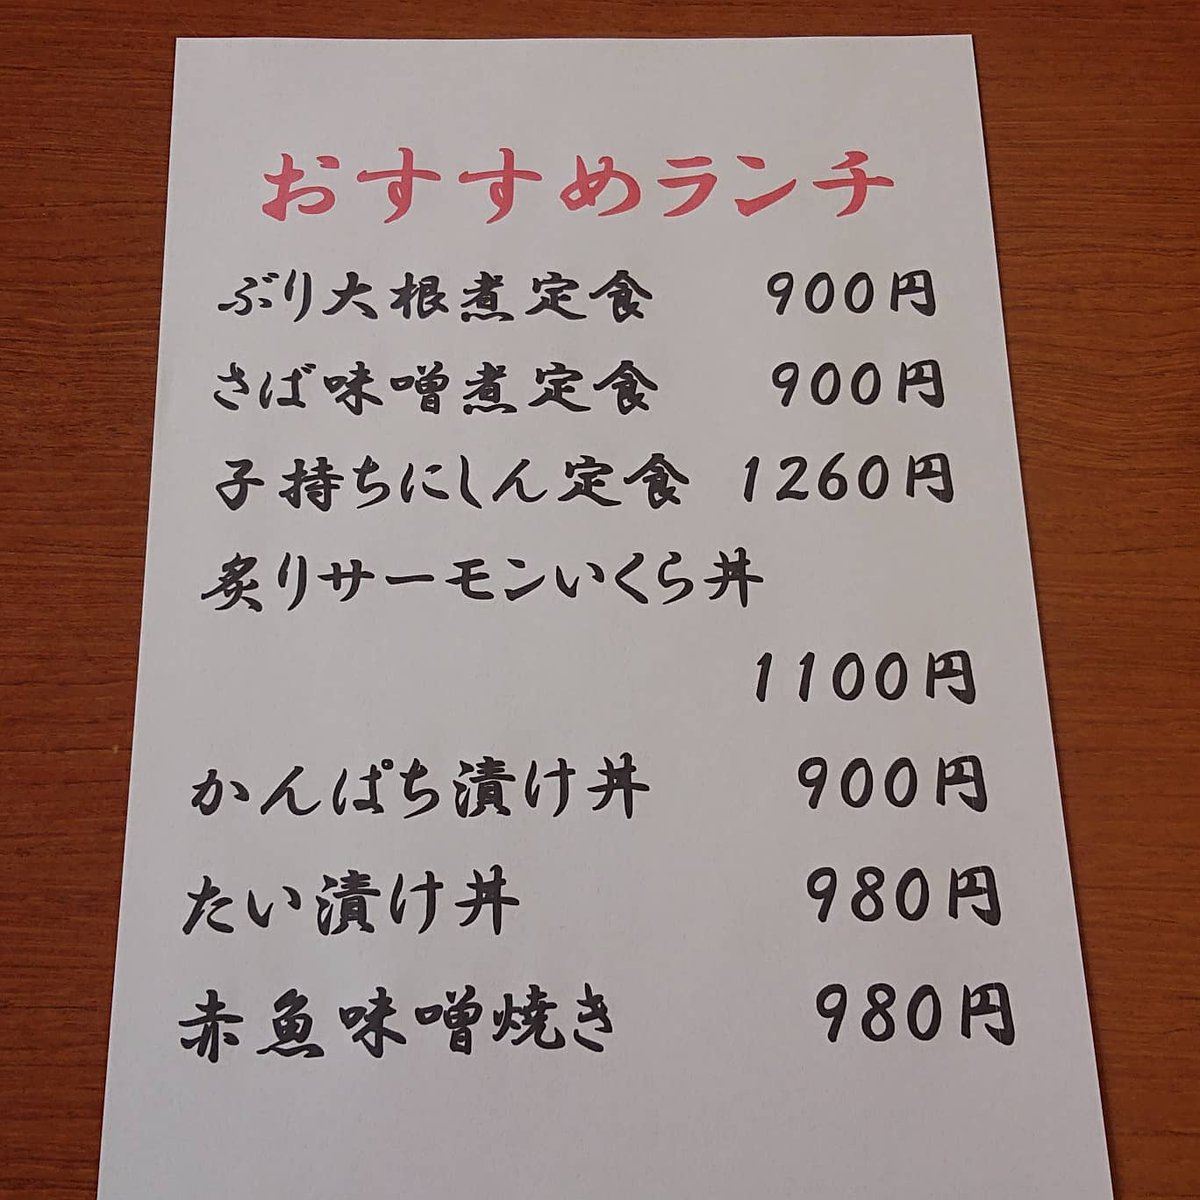 おすすめランチ
ぶり大根煮定食 900円
さば味噌煮定食 900円
子持ちにしん定食 1260円
炙りサーモンいくら丼
1100円
かんぱち漬け丼 900円
たい漬け丼 980円
赤魚味噌焼き 980円